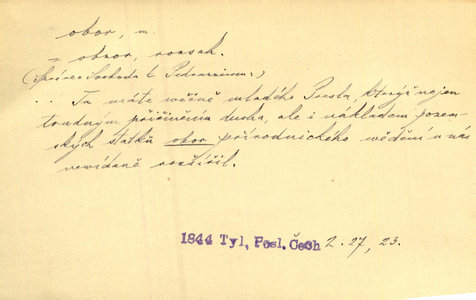 obor, m.
= obzor, rozsah.
(Správce Svoboda k Pedanziusu:)
.. Tu máte věčně mladého Presla, kterýž nejen
trudným přičiněním ducha, ale i nákladem pozem-
ských statků obor přírodnického vědění u nás
nevídaně rozšířil.
1844 Tyl, Posl. Čech 2. 27, 23.